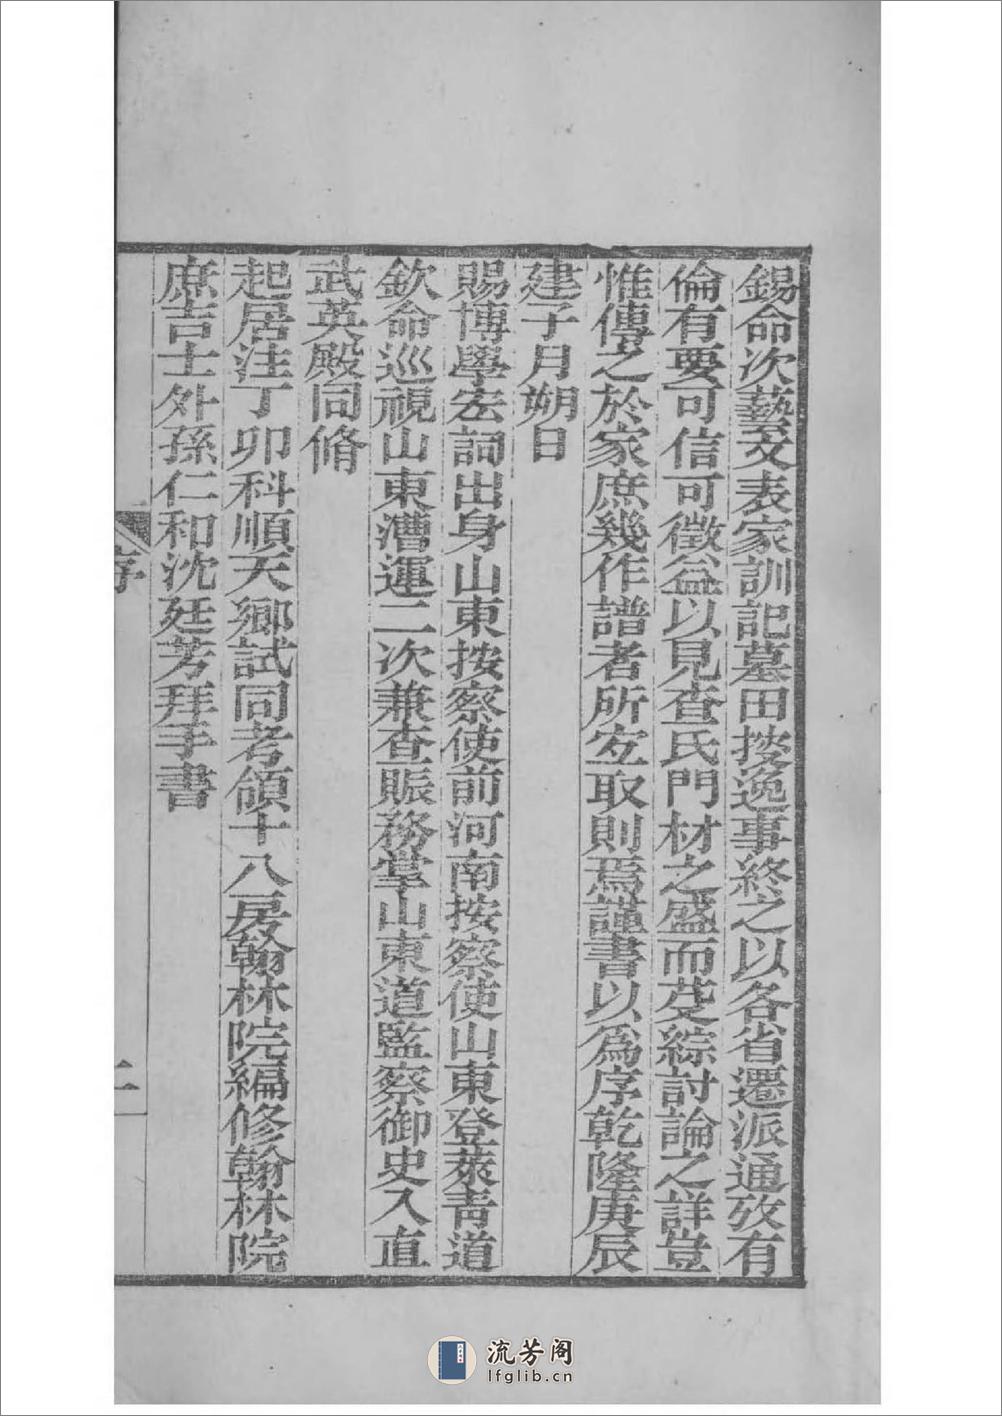 錫命次藝文表家訓記墓田按逸事終之以各省遷派通攷有
倫有要可信可徵益以見查氏門材之盛而芟綜討論之詳豈
惟傳之於家庶幾作譜者所宜取則焉謹書以爲序乾隆庚辰
建子月朔日
賜博學宏詞出身山東按察使前河南按察使山東登萊青道
欽命巡視山東漕運二次兼查賑務掌山東道監察御史入直
武英殿同脩
起居注丁卯科順天鄉試同考領十八房翰林院編修翰林院
庶吉士外孫仁和沈廷芳拜手書
序
二
流芳阁
lfglib.cn